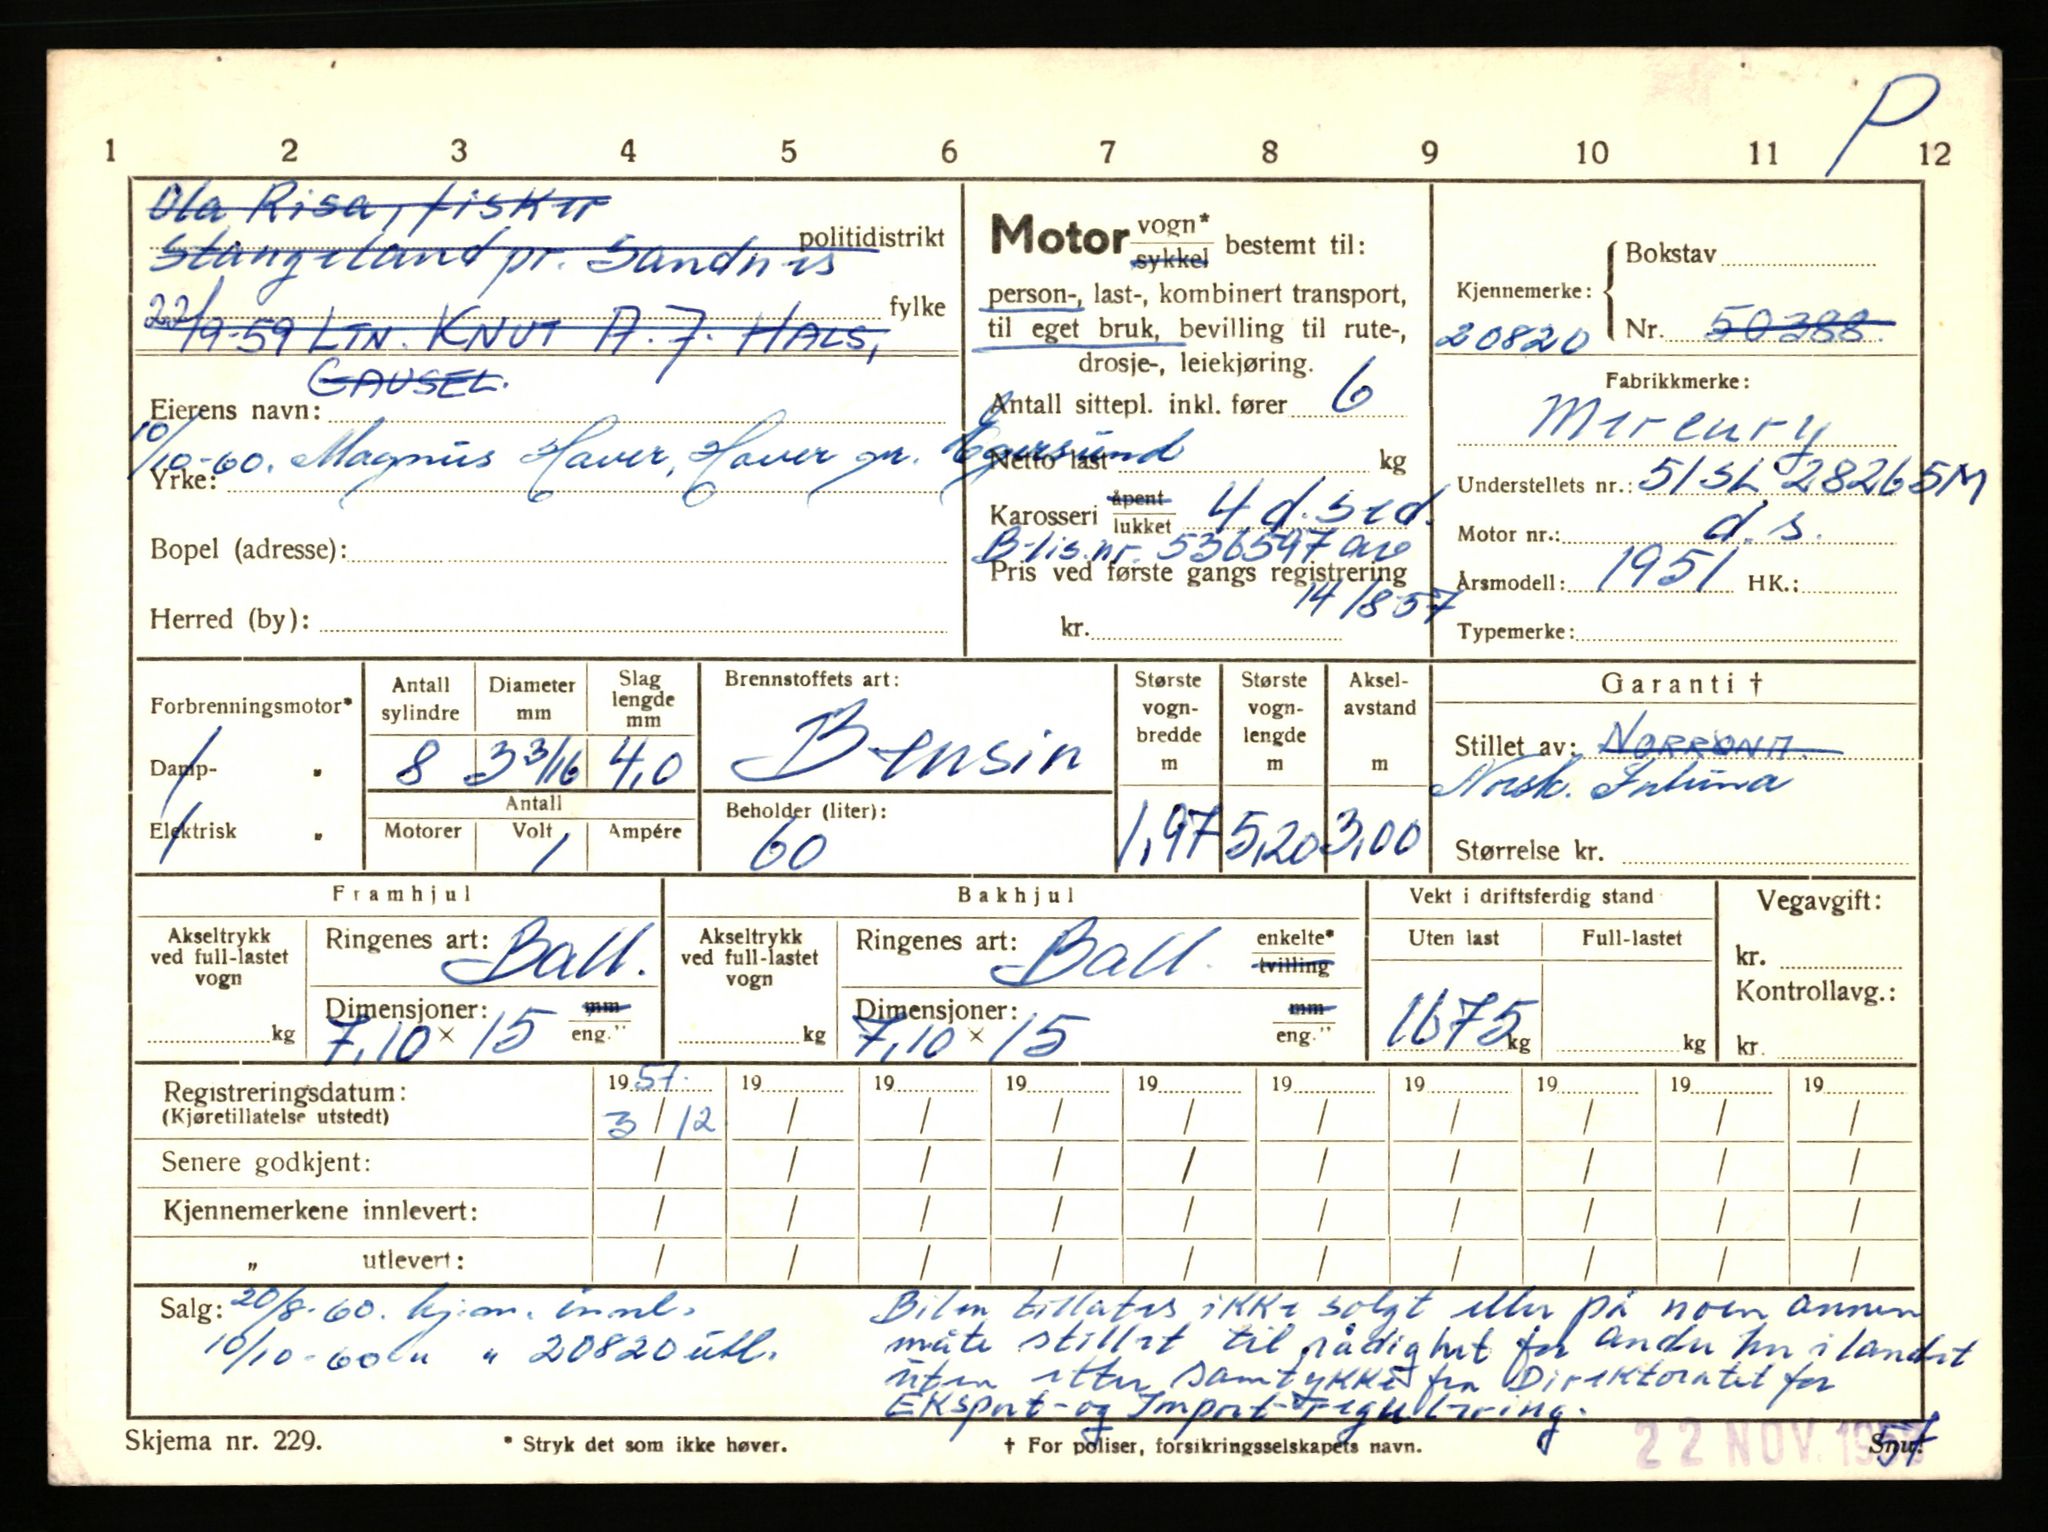 P
1 2 3 4 5 6 7 8 9 10 11 12
Ola Risa, fisker
politidistrikt
Stangeland pr. Sandnes
fylke
22/9-59 LTN. KNUT A. J. HALS,
GAUSEL.
Eierens navn:
10/10-60. Magnus Haver, Haver pr. Egersund
Yrke:
Bopel (adresse):
Herred (by):
Motor vogn* sykkel bestemt til:
person-, last-, kombinert transport,
til eget bruk, bevilling til rute-,
drosje-, leiekjøring.
Antall sittepl. inkl. fører 6
Netto last kg
Karosseri åpent lukket 4 d. sed.
B-lis.nr. 536597 av
Pris ved første gangs registrering
14/8 57
kr.
Bokstav
Kjennemerke:
20820 Nr. 50388.
Fabrikkmerke:
Mercury
Understellets nr.: 51SL 28265M
Motor nr.: d.s.
Årsmodell: 1951 HK.:
Typemerke:
Forbrenningsmotor*
Damp- "
Elektrisk "
Antall sylindre
8
Diameter mm
3 3/16
Slag lengde mm
4,0
Antall
Motorer Volt Ampére
Brennstoffets art:
Bensin
Beholder (liter):
60
Største vogn- bredde m
1,97
Største vogn- lengde m
5,20
Aksel- avstand m
3,00
Garanti †
Stillet av: NORRØNA.
Norsk.
Størrelse kr.
Framhjul
Akseltrykk ved full-lastet vogn
kg
Ringenes art: Ball.
Dimensjoner: mm
7,10 × 15 eng."
Bakhjul
Akseltrykk ved full-lastet vogn
kg
Ringenes art: Ball. enkelte* tvilling
Dimensjoner: mm
7,10 × 15 eng."
Vekt i driftsferdig stand
Uten last Full-lastet
1675 kg kg
Vegavgift:
kr.
Kontrollavg.:
kr.
Registreringsdatum: 19 57. 19 19 19 19 19 19 19 19 19
(Kjøretillatelse utstedt) 3 / 12 / / / / / / / / /
Senere godkjent: / / / / / / / / / /
Kjennemerkene innlevert: / / / / / / / / / /
" utlevert: / / / / / / / / / /
Salg: 20/8-60. kjenm. innl.
10/10-60 " " 20820 utl.
Bilen tillates ikke solgt eller på noen annen
måte stillet til rådighet for andre her i landet
uten etter samtykke fra Direktoratet for
Eksport- og Import-regulering.
Skjema nr. 229.
* Stryk det som ikke høver.
† For poliser, forsikringsselskapets navn.
Snu!
22 NOV. 1957